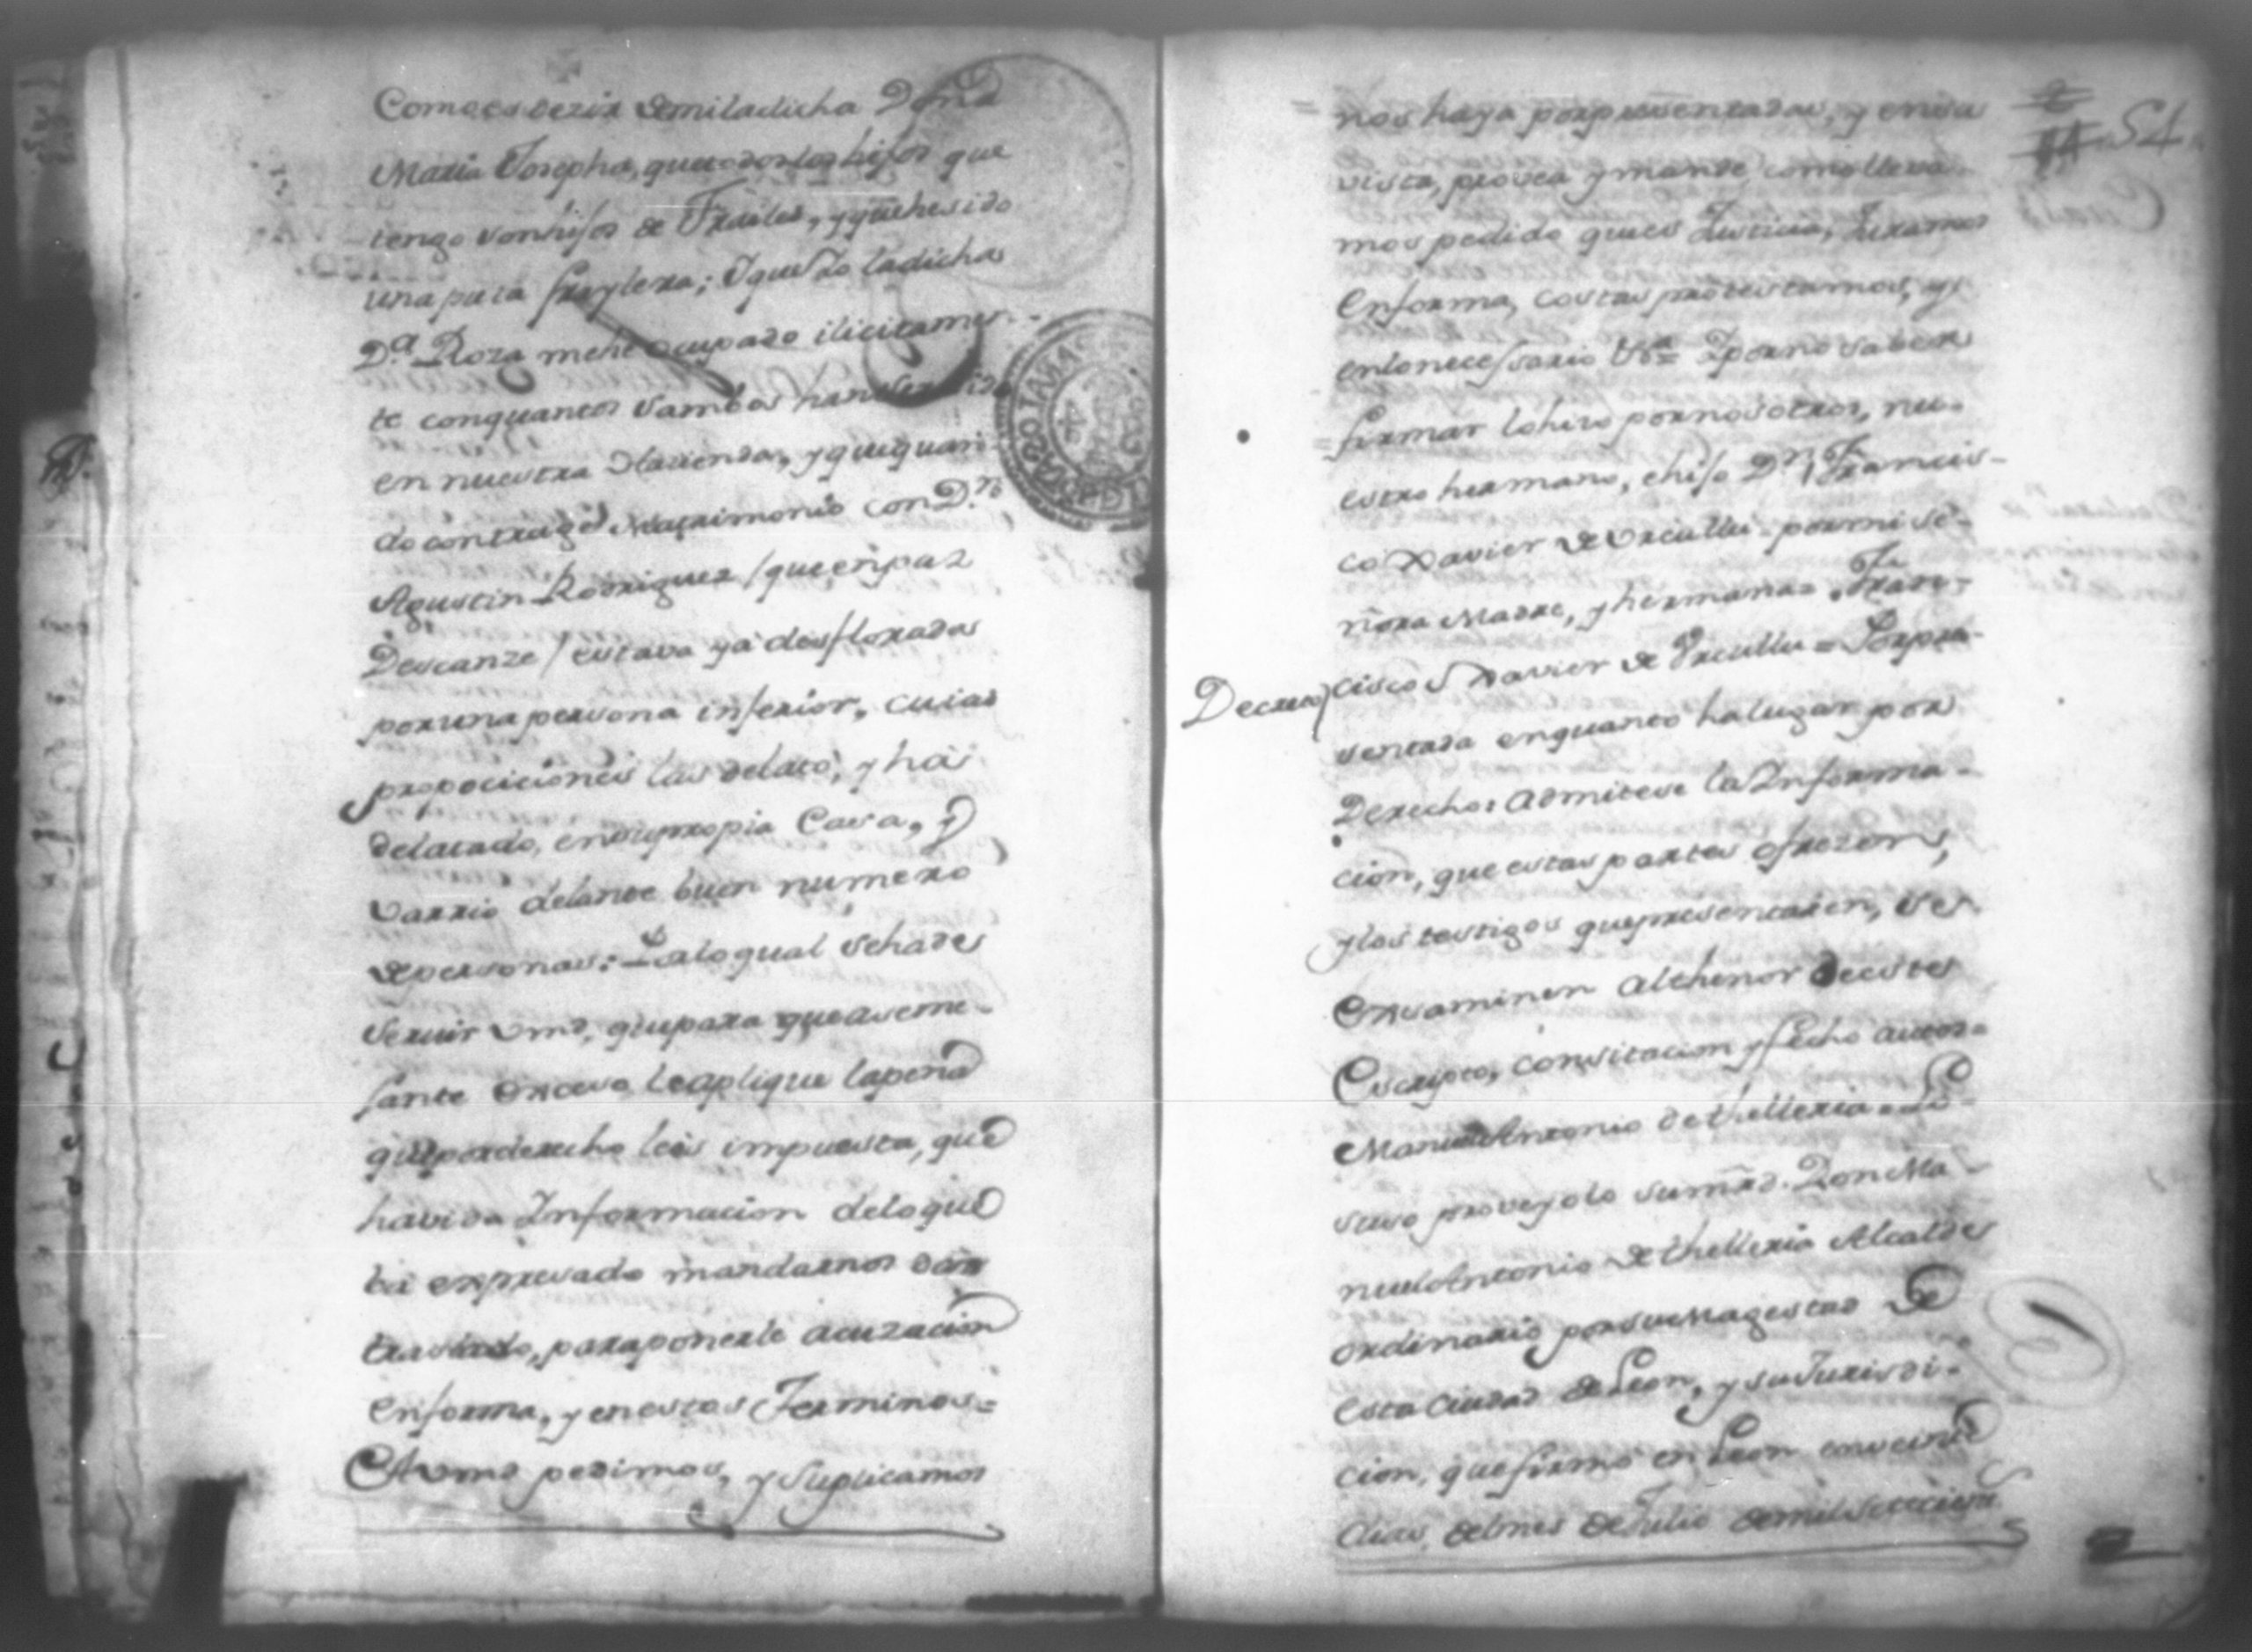 Comoes dezir demiladicha Doña
Maria Josepha, que todos los hijos que
tengo son hijos de Frailes, y que he sido
una puta fraylera; Y que Yo la dicha
D.ª Roza me he ocupado ilicitamen-
te con quantos sambos han servido
en nuestra Hazienda, y que quan-
do contrage Matrimonio con D.n
Agustin Rodriguez / que en paz
Descanze / estava ya desflorada
por una persona inferior, cuias
propociciones las delató, y há
delatado, en su propia Casa, y
varrio delante buen numero
de personas: Por lo qual se ha de
servir Vmd, que para que a seme-
jante exceso le aplique la pena
que por derecho le es impuesta, que
havida Informacion de lo que
bá expresado mandarnos dar
traslado, para ponerle acuzacion
en forma, y en estos Terminos=
A Vmd pedimos, y suplicamos
54
nos haya por presentadas, y en su
vista, provea y mande como lleva-
mos pedido que es Justicia, Juramos
en forma, costas protestamos, y
en lo necessario V.ª= Y por no saber
firmar lo hizo por nosotros, nu-
estro hermano, e hijo D.n Francis-
co Xavier de Urcullu= por mi Se-
ñora Madre, y hermana= Fran-
Decreto) cisco Xavier de Urcullu = Por pre-
sentada en quanto ha lugar por
Derecho: Admitese la Informa-
cion, que estas partes ofrezen,
y los testigos que presentaren, se
examinen al thenor de este
Escripto, con citacion y fecho autos=
Manuel Antonio de thelleria= Lo
suso proveyolo su mrd. Don Ma-
nuel Antonio de thelleria Alcalde
ordinario por su Magestad de
esta Ciudad de Leon, y su Jurisdi-
cion, que firmó en Leon en veinte
dias, del mes de Julio de mil setecien